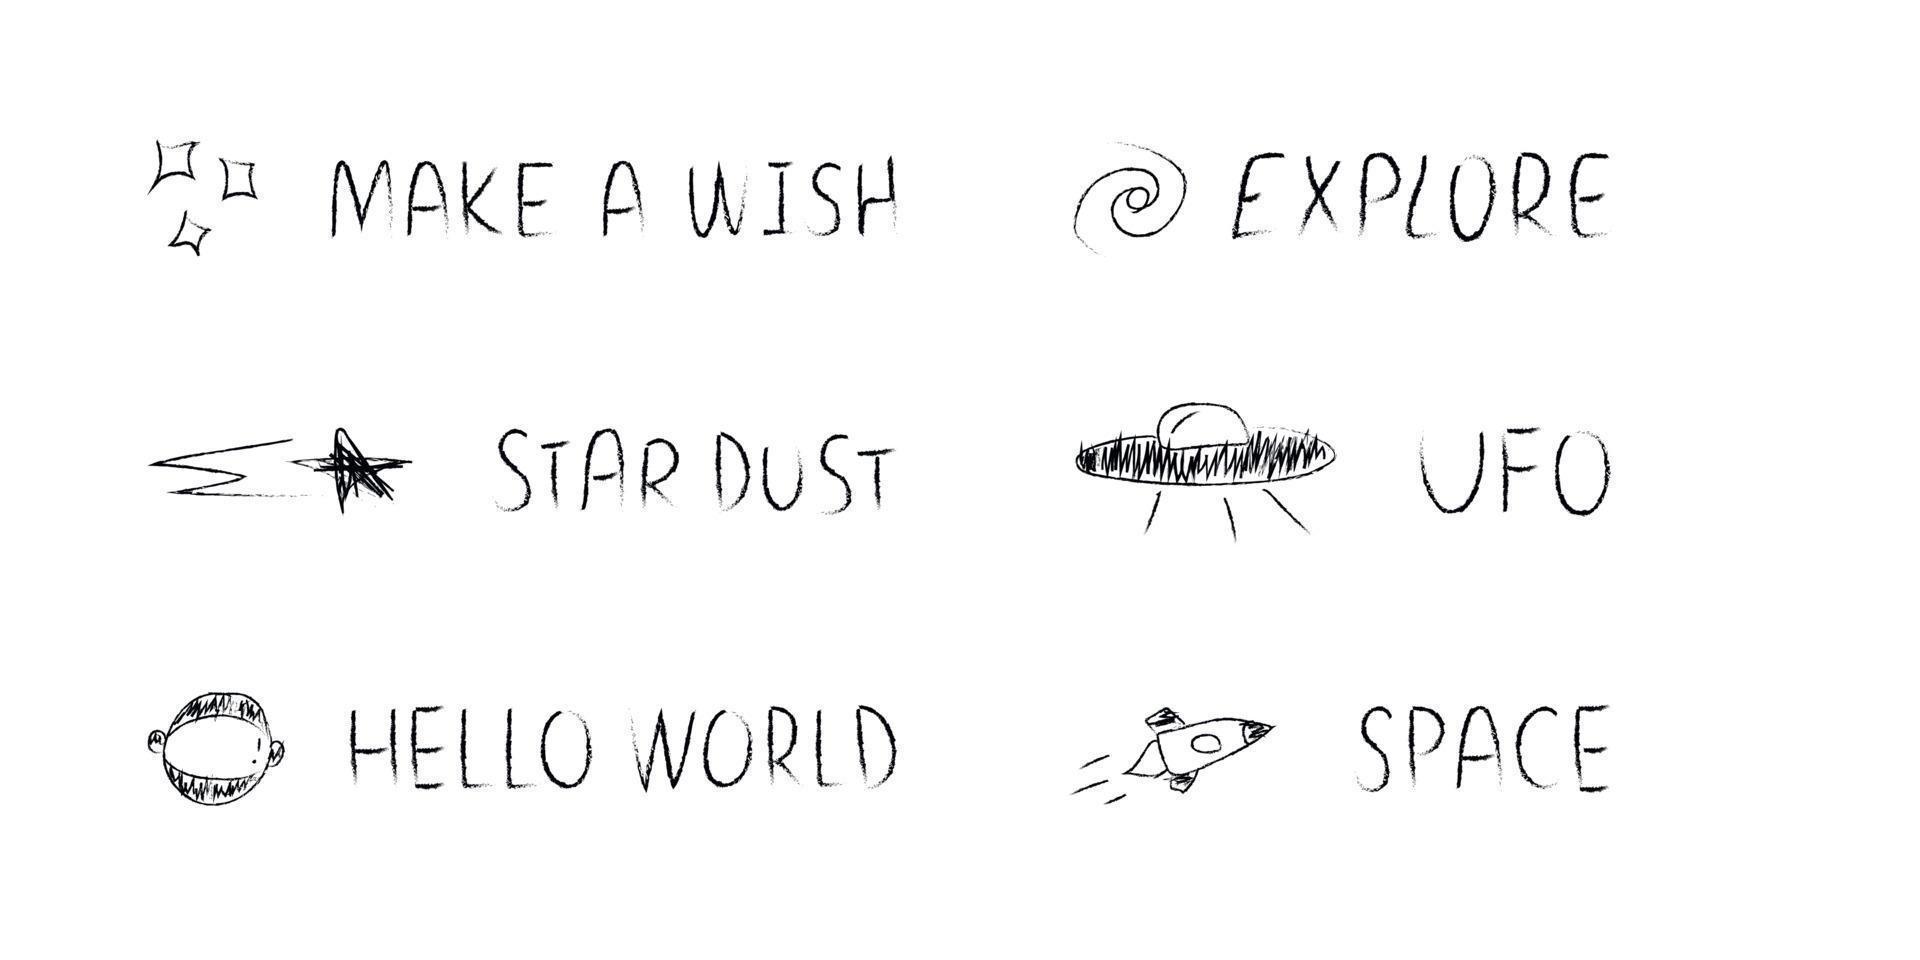 MAKE A WISH
EXPLORE
STAR DUST
UFO
HELLO WORLD
SPACE